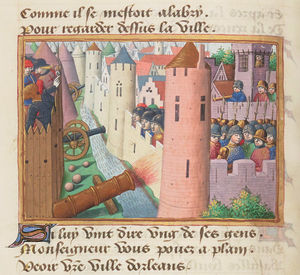 Comme il se mestoit alabry
Pour regarder dessus la ville.
Si luy vint dire vng de ses gens
Monseigneur vous pouez a plain
Veoir vr̃e ville dorleans.